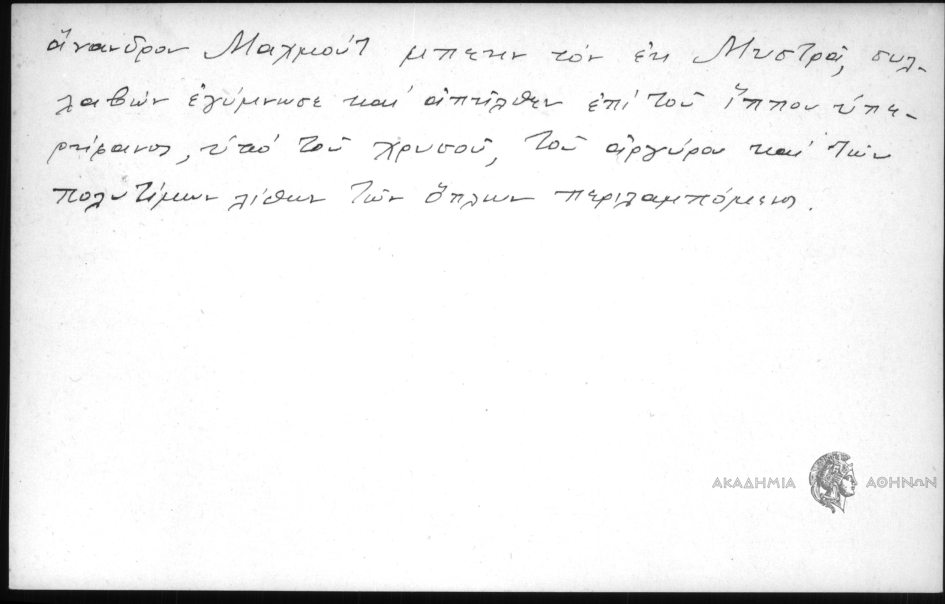 ἄνανδρον Μαχμούτ μπέην τὸν ἐκ Μυστρᾶ, συλ-
λαβὼν ἐγύμνωσε καὶ ἀπῆλθεν ἐπὶ τοῦ ἵππου ὑπε-
ρήφανος, ὑπὸ τοῦ χρυσοῦ, τοῦ ἀργύρου καὶ τῶν
πολυτίμων λίθων τῶν ὅπλων περιλαμπόμενος.
ΑΚΑΔΗΜΙΑ ΑΘΗΝΩΝ